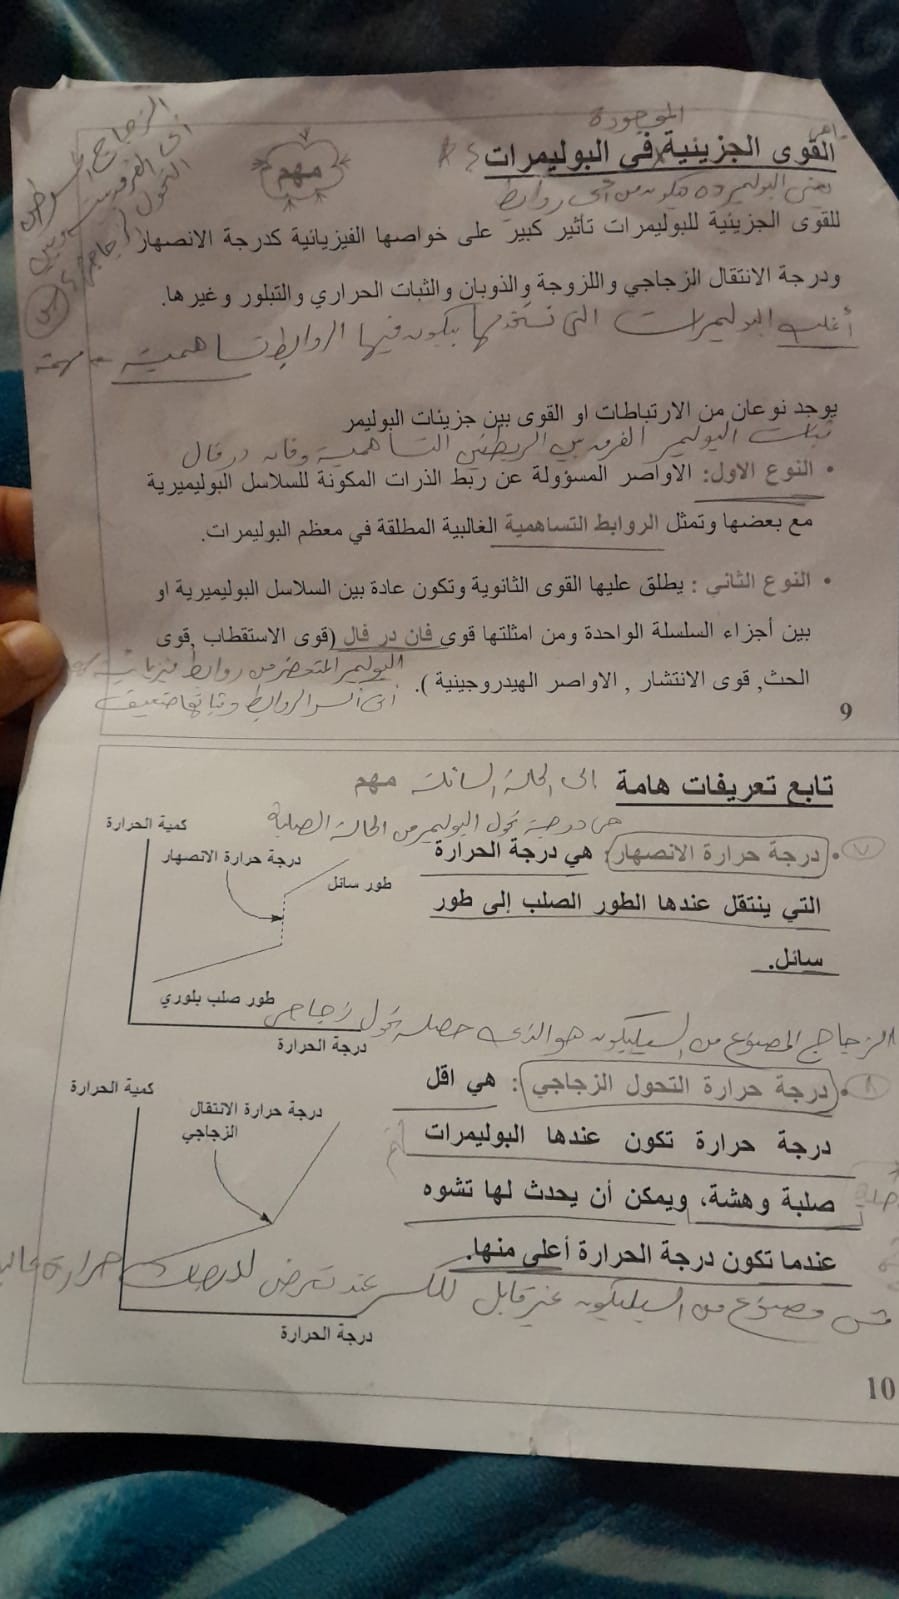 الموجودة
القوى الجزيئية في البوليمرات
مهم
للقوى الجزيئية للبوليمرات تأثير كبير على خواصها الفيزيائية كدرجة الانصهار
ودرجة الانتقال الزجاجي واللزوجة والذوبان والثبات الحراري والتبلور وغيرها.
أغلب البوليمرات التى نستخدمها بيكون فيها الروابط تساهمية مهمة
يوجد نوعان من الارتباطات او القوى بين جزيئات البوليمر
ثبات البوليمر الفرق بين الربطتين التساهمية وفان در فال
• النوع الاول: الاواصر المسؤولة عن ربط الذرات المكونة للسلاسل البوليميرية
مع بعضها وتمثل الروابط التساهمية الغالبية المطلقة في معظم البوليمرات.
• النوع الثاني : يطلق عليها القوى الثانوية وتكون عادة بين السلاسل البوليميرية او
بين أجزاء السلسلة الواحدة ومن امثلتها قوى فان در فال (قوى الاستقطاب ,قوى
الحث, قوى الانتشار , الاواصر الهيدروجينية ).
9
تابع تعريفات هامة
الى الحالة السائلة مهم
هى درجة تحول البوليمر من الحالة الصلبة
• درجة حرارة الانصهار: هي درجة الحرارة
التي ينتقل عندها الطور الصلب إلى طور
سائل.
كمية الحرارة
درجة حرارة الانصهار
طور سائل
طور صلب بلوري
درجة الحرارة
الزجاج المصنوع من السيليكون هو الذى حصله تحول زجاجى
• درجة حرارة التحول الزجاجي : هي اقل
درجة حرارة تكون عندها البوليمرات
صلبة وهشة، ويمكن أن يحدث لها تشوه
عندما تكون درجة الحرارة أعلى منها.
كمية الحرارة
درجة حرارة الانتقال
الزجاجي
درجة الحرارة
مصنوع من السيليكون غير قابل للكسر عند تعرض لدرجات حرارة
10